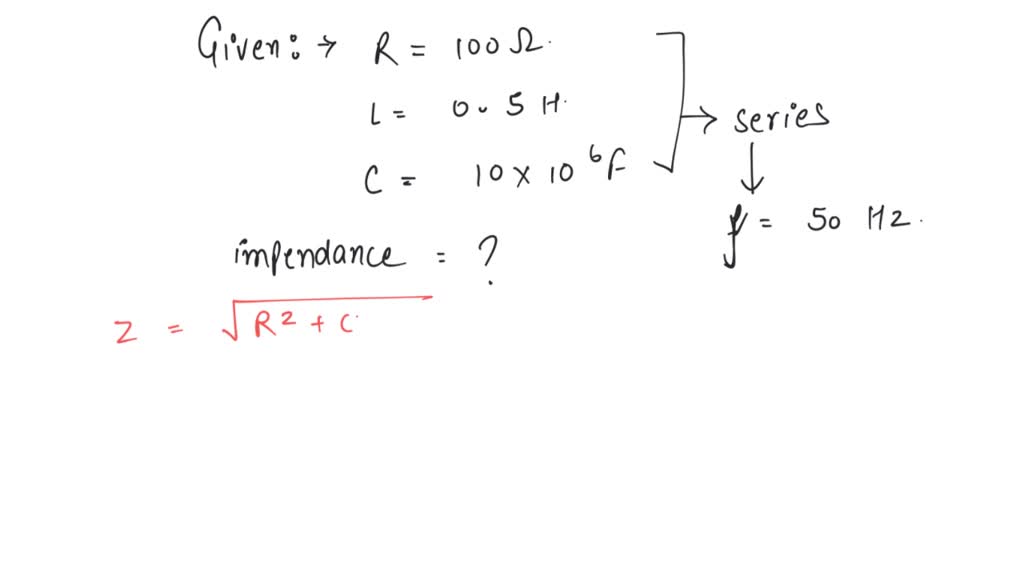 Given: → R = 100 Ω.
L = 0.5 H.
C = 10 × 10⁶F
→ series
↓
f = 50 Hz.
impendance = ?
Z = √R² + (